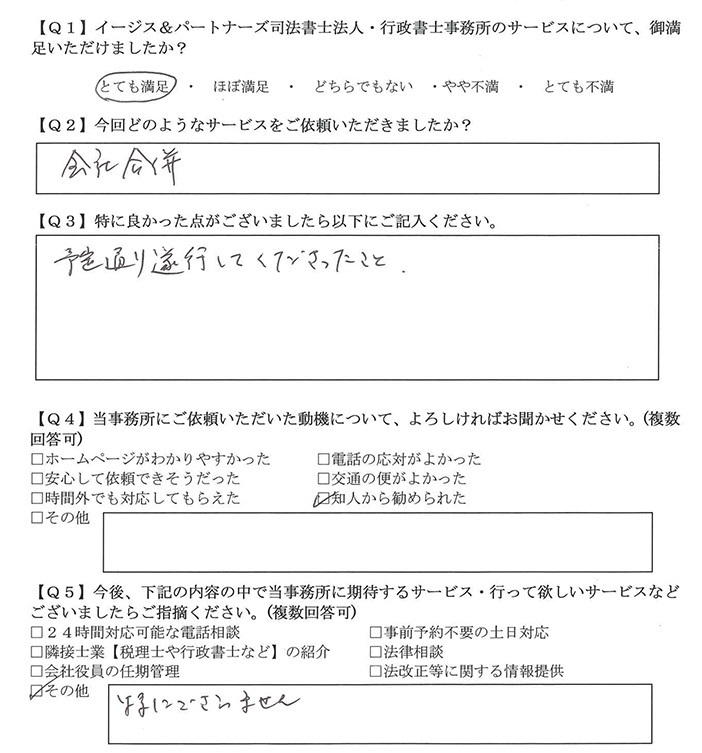 【Q１】イージス＆パートナーズ司法書士法人・行政書士事務所のサービスについて、御満
足いただけましたか？
とても満足 ・ ほぼ満足 ・ どちらでもない ・やや不満 ・ とても不満
【Q２】今回どのようなサービスをご依頼いただきましたか？
会社合併
【Q３】特に良かった点がございましたら以下にご記入ください。
予定通り遂行してくださったこと.
【Q４】当事務所にご依頼いただいた動機について、よろしければお聞かせください。(複数
回答可)
□ホームページがわかりやすかった □電話の応対がよかった
□安心して依頼できそうだった □交通の便がよかった
□時間外でも対応してもらえた ☑知人から勧められた
□その他
【Q５】今後、下記の内容の中で当事務所に期待するサービス・行って欲しいサービスなど
ございましたらご指摘ください。(複数回答可)
□２４時間対応可能な電話相談 □事前予約不要の土日対応
□隣接士業【税理士や行政書士など】の紹介 □法律相談
□会社役員の任期管理 □法改正等に関する情報提供
☑その他 特にございません